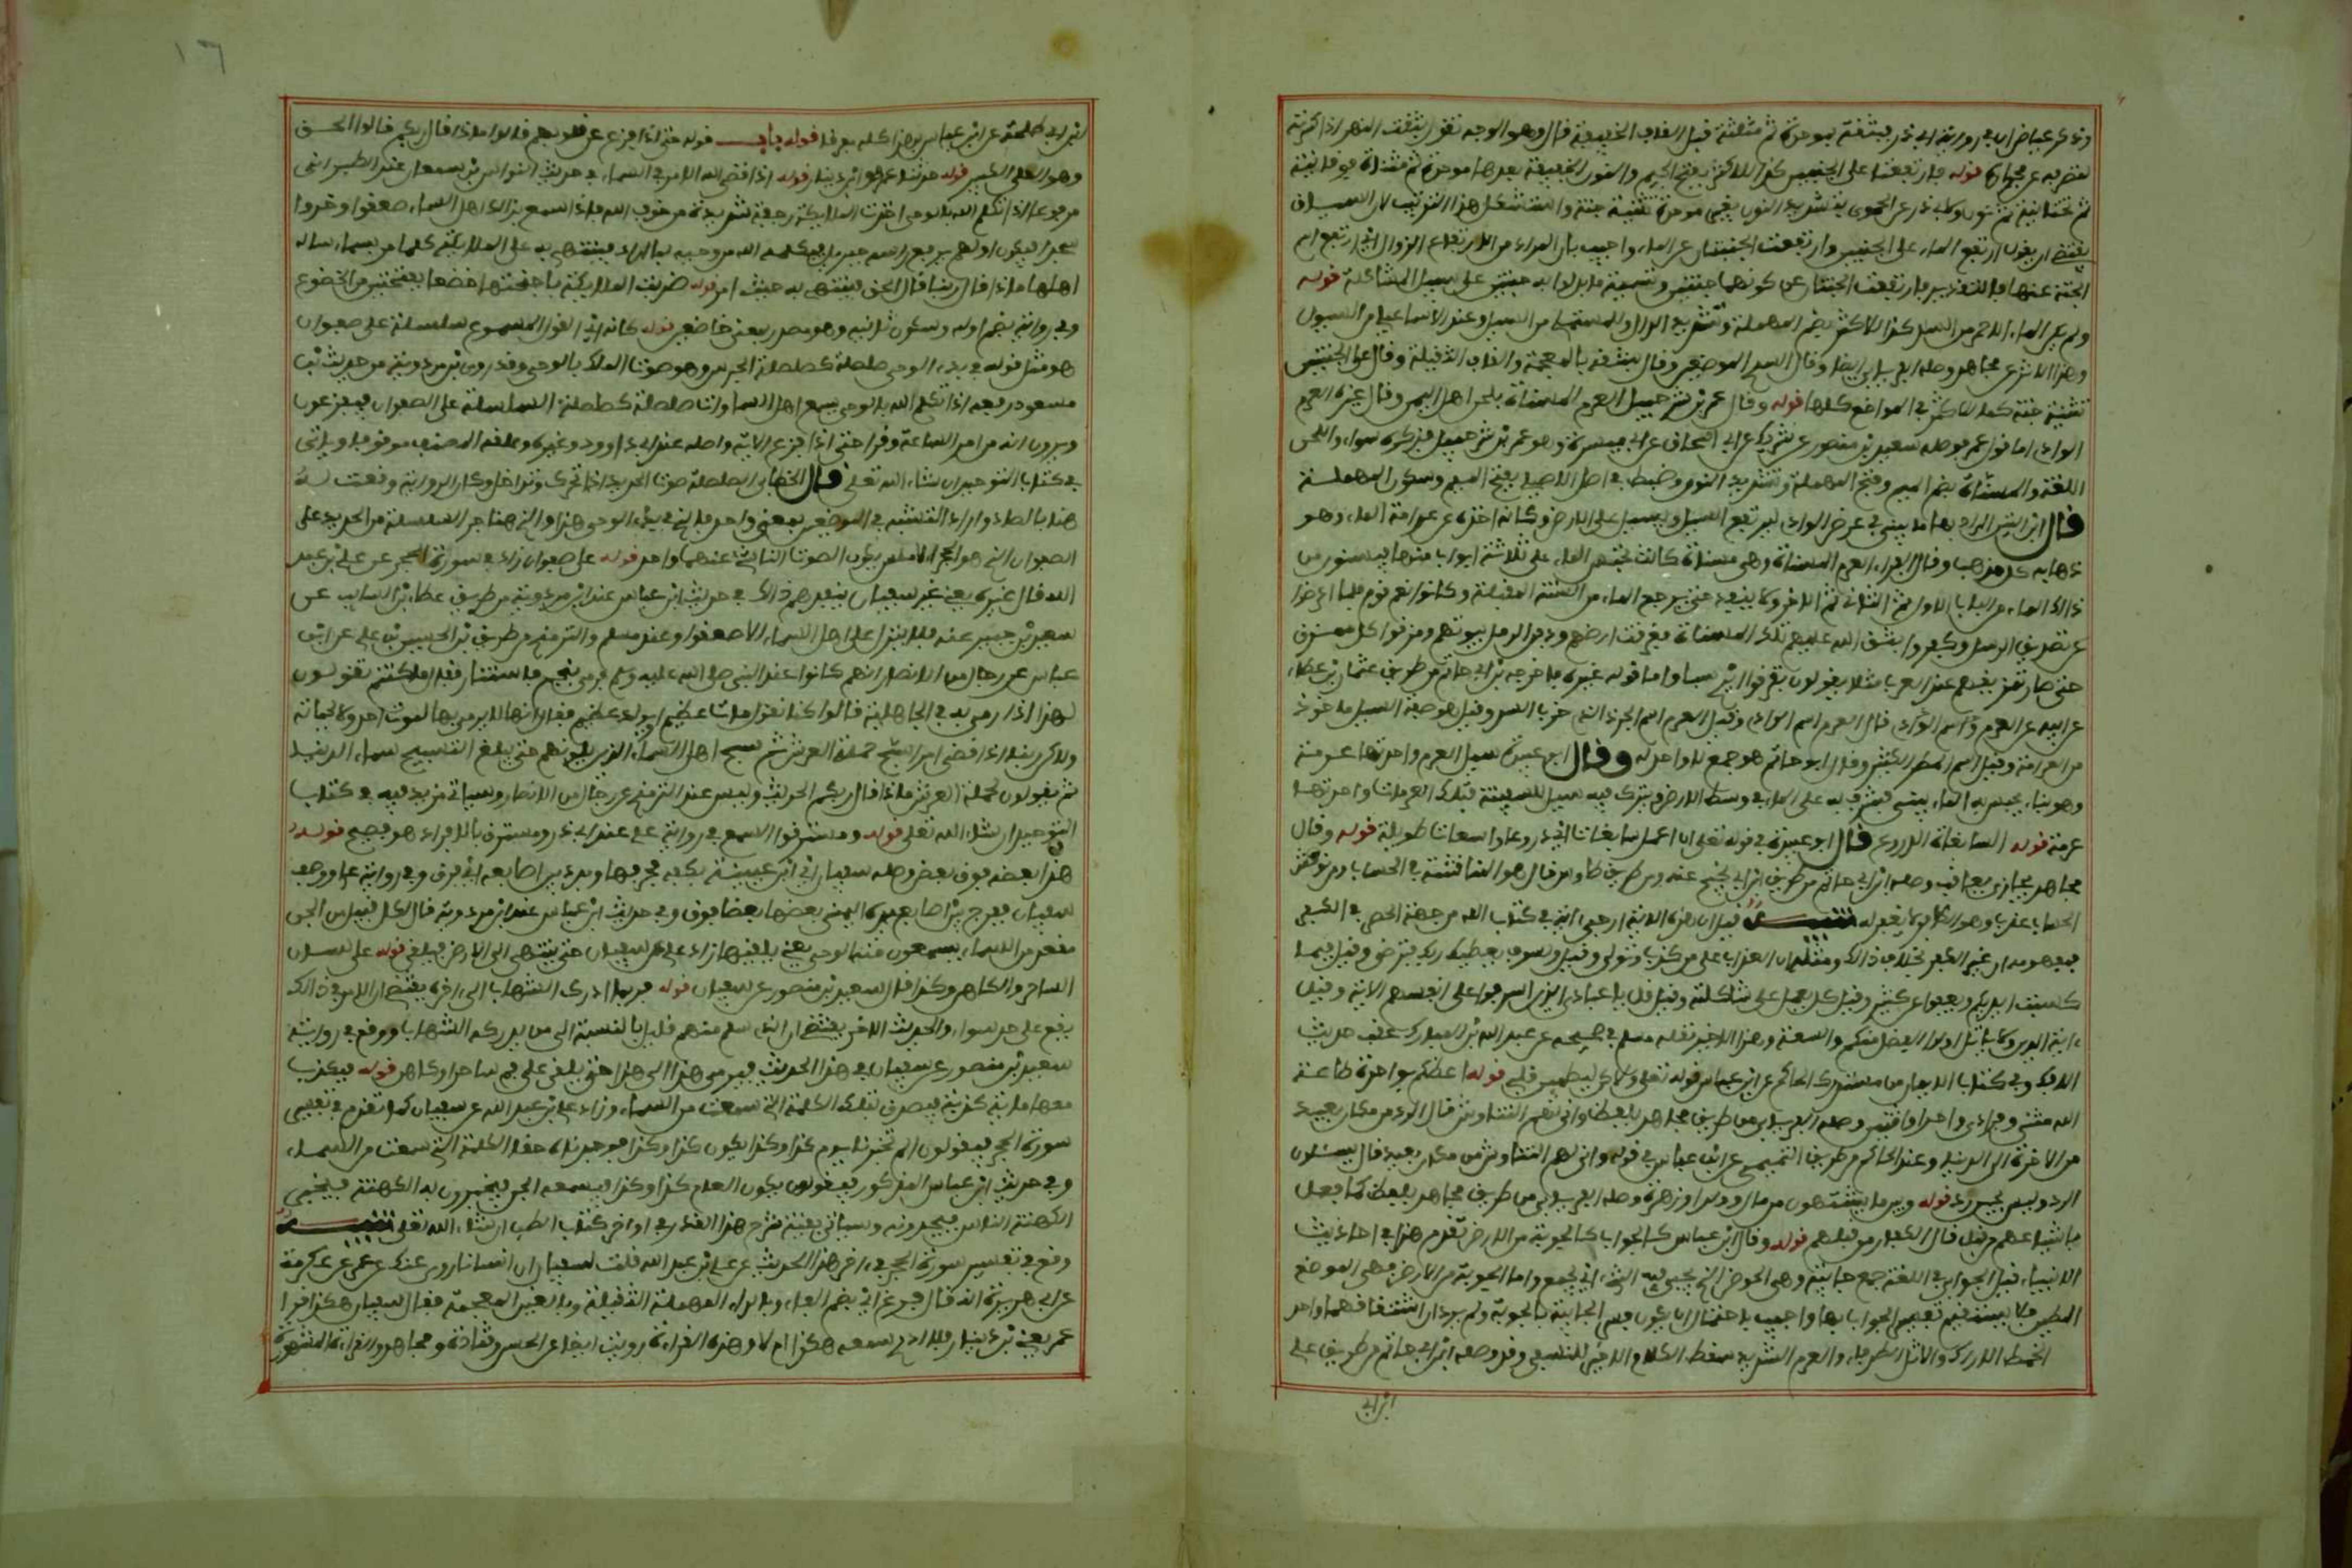 وذكر عياض ان في رواية ابي ذر فبثقه بموحدة ثم مثلثة قبل القاف الخفيفة قال وهو الوجه تقول بثقت النهر اذا كسرته
لتصرفه عن مجراه قوله فارتفعتا على الجنبتين كذا للاكثر بفتح الجيم والنون الخفيفة بعدها موحدة ثم مثناة فوقانية
ثم تحتانية ثم نون ولابي ذر عن الحموي بتشديد النون بغير موحدة تثنية جنة واستشكل هذا الترتيب لان السياق
يقتضي ان يقول ارتفع الماء على الجنتين وارتفعت الجنتان عن الماء واجيب بان المراد من الارتفاع الزوال اي ارتفع اسم
الجنة عنهما فالتقدير فارتفعت الجنتان عن كونهما جنتين وتسمية ما بدلوا به جنتين على سبيل المشاكلة قوله
ولم يكن الماء الاحمر من السد كذا للاكثر بضم المهملة وتشديد الدال وللمستملي من السيل وعند الاسماعيلي من السيول
وهذا الاثر عن مجاهد وصله الفريابي ايضا وقال السد في الموضعين وقال فشقه بالمعجمة والقاف الثقيلة وقال على الجنتين
تثنية جنة كما للاكثر في المواضع كلها قوله وقال عمرو بن شرحبيل العرم المسناة بلحن اهل اليمن وقال غيره العرم
الوادي اما قول عمرو فوصله سعيد بن منصور عن شريك عن ابي اسحاق عن ابي ميسرة وهو عمرو بن شرحبيل فذكره سواء واللحن
اللغة والمسناة بضم الميم وفتح المهملة وتشديد النون وضبط في اصل الاصيلي بفتح الميم وسكون المهملة
قال ابن التين المراد بها ما يبنى في عرض الوادي ليرتفع السيل ويسيل على الارض وكانه اخذه من عرامة الماء وهو
ذهابه كل مذهب وقال الفراء العرم المسناة وهي مسناة كانت تحبس الماء على ثلاثة ابواب منها فيسقون من
ذلك الماء من الباب الاول ثم الثاني ثم الاخر ولا ينفد حتى يرجع الماء من السنة المقبلة وكانوا انعم قوم فلما اعرضوا
عن تصديق الرسل وكفروا بثق الله عليهم تلك المسناة فغرقت ارضهم ودفن الرمل بيوتهم ومزقوا كل ممزق
حتى صار تمزيقهم عند العرب مثلا يقولون تفرقوا ايدي سبا واما قول غيره فاخرجه ابن ابي حاتم من طريق عثمان بن عطاء
عن ابيه عن العرم اسم الوادي قال العرم اسم الوادي وقيل العرم اسم الجرذ الذي خرب السد وقيل هو صفة السيل ماخوذ
من العرامة وقيل اسم المطر الكثير وقال ابو حاتم هو جمع لا واحد له وقال ابو عبيدة سيل العرم واحدتها عرمة
وهو بناء يحبس به الماء يبنى فيشرف به على الماء في وسط الارض ويترك فيه سبيل للسفينة فتلك العرمات واحدتها
عرمة قوله السابغات الدروع قال ابو عبيدة في قوله تعلى ان اعمل سابغات اي دروعا واسعات طويلة قوله وقال
مجاهد يجازى يعاقب وصله ابن ابي حاتم من طريق ابن ابي نجيح عنه ومن طريق طاوس قال هو المناقشة في الحساب ومن نوقش
الحساب عذب وهو الكافر لا يغفر له تنبيه قيل ان هذه الاية ارجى اية في كتاب الله من جهة الحصر في الكفر
فمفهومه ان غير الكفر بخلاف ذلك ومثله ان العذاب على من كذب وتولى وقيل ولسوف يعطيك ربك فترضى وقيل فبما
كسبت ايديكم ويعفو عن كثير وقيل كل يعمل على شاكلته وقيل قل يا عبادي الذين اسرفوا على انفسهم الاية وقيل
اية الدين ولا ياتل اولوا الفضل منكم والسعة وهذا الاخير نقله مسلم في صحيحه عن عبد الله بن المبارك عقب حديث
الافك وفي كتاب الايمان من مستدرك الحاكم عن ابن عباس قوله تعلى ولكن ليطمئن قلبي قوله اعظكم بواحدة طاعة
الله مثنى وفرادى واحدا واثنين وصله الفريابي من طريق مجاهد بلفظ واني لهم التناوش قال الرد من مكان بعيد
من الاخرة الى الدنيا وعند الحاكم من طريق التميمي عن ابن عباس في قوله وانى لهم التناوش من مكان بعيد قال يسئلون
الرد وليس بحين رد قوله وبين ما يشتهون من مال وولد او زهرة وصله الفريابي من طريق مجاهد بلفظ كما فعل
باشياعهم من قبل قال الكفار من قبلهم قوله وقال ابن عباس كالجواب كالجوبة من الارض تقدم هذا في احاديث
الانبياء قيل الجوابي في اللغة جمع جابية وهي الحوض الذي يجبى فيه الشيء اي يجمع واما الجوبة من الارض فهي الموضع
المطمئن فلا يستقيم تفسير الجواب بها واجيب باحتمال ان يكون فسر الجابية بالجوبة ولم يرد ان اشتقاقهما واحد
الخمط الاراك والاثل الطرفاء والعرم الشديد سقط الكلام الاخير للنسفي وقد وصله ابن ابي حاتم من طريق علي
ابن ابي
١٦
ابن ابي طلحة عن ابن عباس بهذا كله مفرقا قوله باب قوله حتى اذا فزع عن قلوبهم قالوا ماذا قال ربكم قالوا الحق
وهو العلي الكبير قوله حدثنا عمرو هو ابن دينار قوله اذا قضى الله الامر في السماء في حديث النواس بن سمعان عند الطبراني
مرفوعا اذا تكلم الله بالوحي اخذت السماء رجفة شديدة من خوف الله فاذا سمع بذلك اهل السماء صعقوا وخروا
سجدا فيكون اولهم يرفع راسه جبريل فيكلمه الله من وحيه بما اراد فينتهي به على الملائكة كلما مر بسماء ساله
اهلها ماذا قال ربنا قال الحق فينتهي به حيث امر قوله ضربت الملائكة باجنحتها خضعانا بفتحتين من الخضوع
وفي رواية بضم اوله وسكون ثانيه وهو مصدر بمعنى خاضعين قوله كانه اي القول المسموع سلسلة على صفوان
هو مثل قوله في بدء الوحي صلصلة كصلصلة الجرس وهو صوت الملك بالوحي وقد روى ابن مردويه من حديث ابن
مسعود رفعه اذا تكلم الله بالوحي يسمع اهل السماوات صلصلة كصلصلة السلسلة على الصفوان فيفزعون
ويرون انه من امر الساعة وقرا حتى اذا فزع الاية واصله عند ابي داوود وغيره وعلقه المصنف موقوفا وياتي
في كتاب التوحيد ان شاء الله تعلى قال الخطابي الصلصلة صوت الحديد اذا تحرك وتداخل وكان الرواية وقعت له
هنا بالصاد واراد التشبيه في الموضعين بمعنى واحد فالذي في بدء الوحي هذا والذي هنا جر السلسلة من الحديد على
الصفوان الذي هو الحجر الاملس يكون الصوت الناشئ عنهما واحد قوله على صفوان زاد في سورة الحجر عن علي بن عبد
الله قال غيره يعني غير سفيان ينفذهم ذلك في حديث ابن عباس عند ابن مردويه من طريق عطاء بن السايب عن
سعيد بن جبير عنه فلا ينزل على اهل السماء الا صعقوا وعند مسلم والترمذي من طريق علي بن الحسين بن علي عن ابن
عباس عن رجال من الانصار انهم كانوا عند النبي صلى الله عليه وسلم فرمي بنجم فاستنار فقال ما كنتم تقولون
لهذا اذا رمي به في الجاهلية قالوا كنا نقول مات عظيم او يولد عظيم فقال انها لا يرمى بها لموت احد ولا لحياته
ولكن ربنا اذا قضى امرا سبح حملة العرش ثم سبح اهل السماء الذين يلونهم حتى يبلغ التسبيح سماء الدنيا
ثم يقولون لحملة العرش ماذا قال ربكم الحديث وليس عند الترمذي عن رجال من الانصار وسياتي مزيد فيه في كتاب
التوحيد ان شاء الله تعلى قوله ومسترقوا السمع في رواية علي عند ابي ذر ومسترق بالافراد وهو فصيح قوله
هكذا بعضه فوق بعض وصفه سفيان اي ابن عيينة بكفه فحرفها وبدد بين اصابعه اي فرق وفي رواية علي ووصف
سفيان ففرج بين اصابع يده اليمنى بعضها بعضا فوق وفي حديث ابن عباس عند ابن مردويه قال لكل قبيل من الجن
مقعد من السماء يسمعون منه الوحي يعني يلقيها زاد علي عن سفيان حتى ينتهي الى الارض فيلقى قوله على لسان
الساحر والكاهن وكذا قال سعيد بن منصور عن سفيان قوله فربما ادرك الشهاب الى اخره يقتضي ان الامر في ذلك
يقع على حد سواء والحديث الاخر يقتضي ان الذي يسلم منهم قليل بالنسبة الى من يدركه الشهاب ووقع في رواية
سعيد بن منصور عن سفيان في هذا الحديث فيرمي هذا الى هذا حتى يلقي على فم ساحر او كاهن قوله فيكذب
معها ماية كذبة فيصدق بتلك الكلمة التي سمعت من السماء زاد علي بن عبد الله عن سفيان كما تقدم في تفسير
سورة الحجر فيقولون الم تخبرنا يوم كذا وكذا يكون كذا وكذا فوجدناه حقا الكلمة التي سمعت من السماء
وفي حديث ابن عباس المذكور فيقولون يكون العام كذا وكذا فيسمعه الجن فيخبرون به الكهنة فيخبر
الكهنة الناس فيجدونه وسياتي بقية شرح هذا القدر في اواخر كتاب الطب ان شاء الله تعلى تنبيه
وقع في تفسير سورة الحجر في اخر هذا الحديث عن علي بن عبد الله قلت لسفيان ان انسانا روى عنك عن عمرو عن عكرمة
عن ابي هريرة انه قال فرغ اي بضم الفاء وبالراء المهملة الثقيلة وبالغين المعجمة فقال سفيان هكذا قرا
عمرو يعني ابن دينار فلا ادري سمعه هكذا ام لا وهذه القراءة رويت ايضا عن الحسن وقتادة ومجاهد والقراءة المشهورة